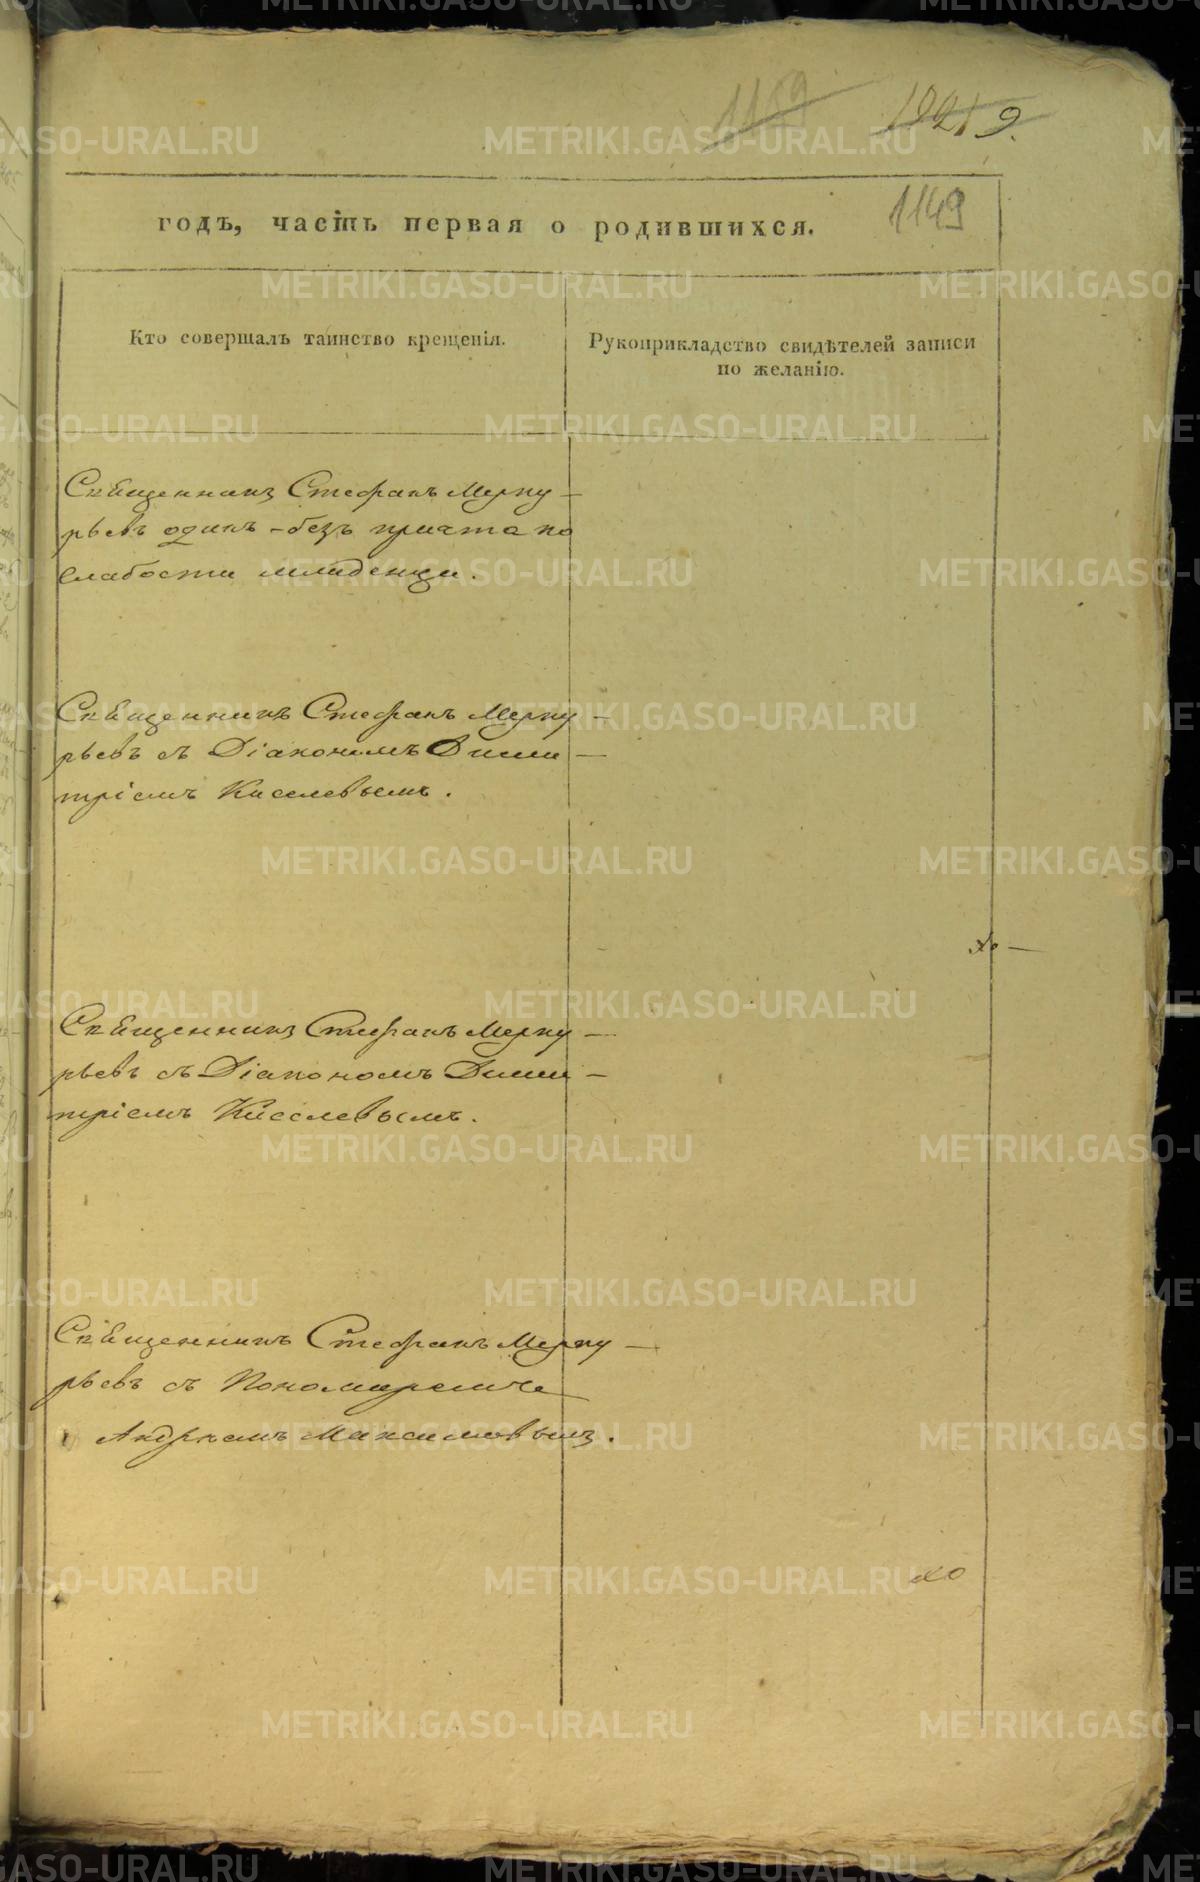 1159 1921 9.
1149
годъ, часть первая о родившихся.
Кто совершалъ таинство крещенія.
Рукоприкладство свидѣтелей записи
по желанію.
Священникъ Стефанъ Мерку-
рьевъ одинъ - безъ причта по
слабости младенца.
Священникъ Стефанъ Мерку-
рьевъ съ Діакономъ Дими-
тріемъ Киселевымъ.
Священникъ Стефанъ Мерку-
рьевъ съ Діакономъ Дими-
тріемъ Киселевымъ.
Священникъ Стефанъ Мерку-
рьевъ съ Пономаремъ
Андреемъ Максимовымъ.
METRIKI.GASO-URAL.RU